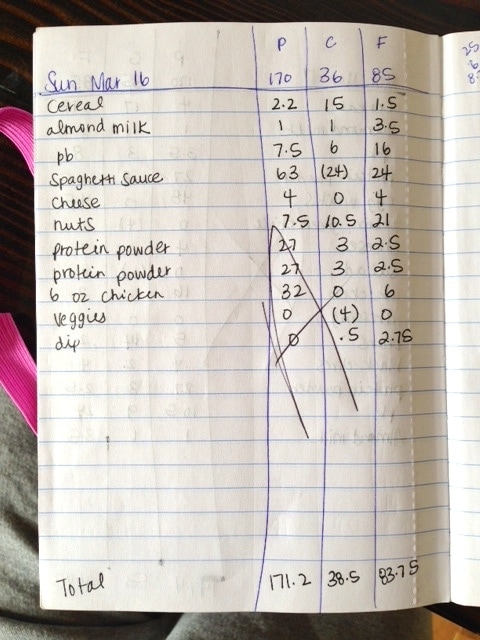 P C F
Sun Mar 16 170 36 85
Cereal 2.2 15 1.5
almond milk 1 1 3.5
pb 7.5 6 16
Spaghetti Sauce 63 (24) 24
Cheese 4 0 4
nuts 7.5 10.5 21
protein powder 27 3 2.5
protein powder 27 3 2.5
6 oz chicken 32 0 6
Veggies 0 (4) 0
dip 0 .5 2.75
Total 171.2 38.5 83.75